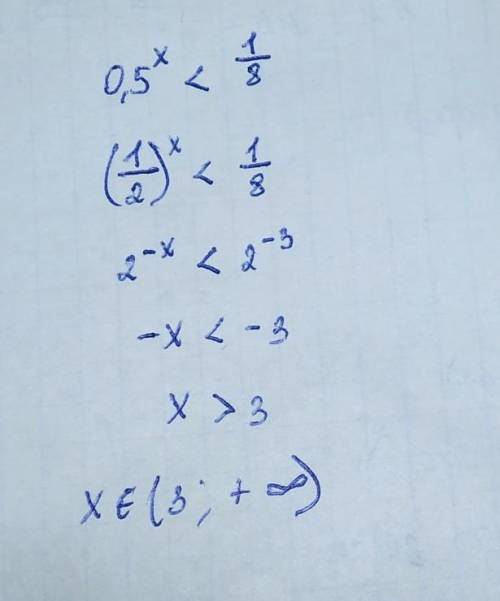 0,5^x < 1/8
(1/2)^x < 1/8
2^-x < 2^-3
-x < -3
x > 3
x ∈ (3; +∞)